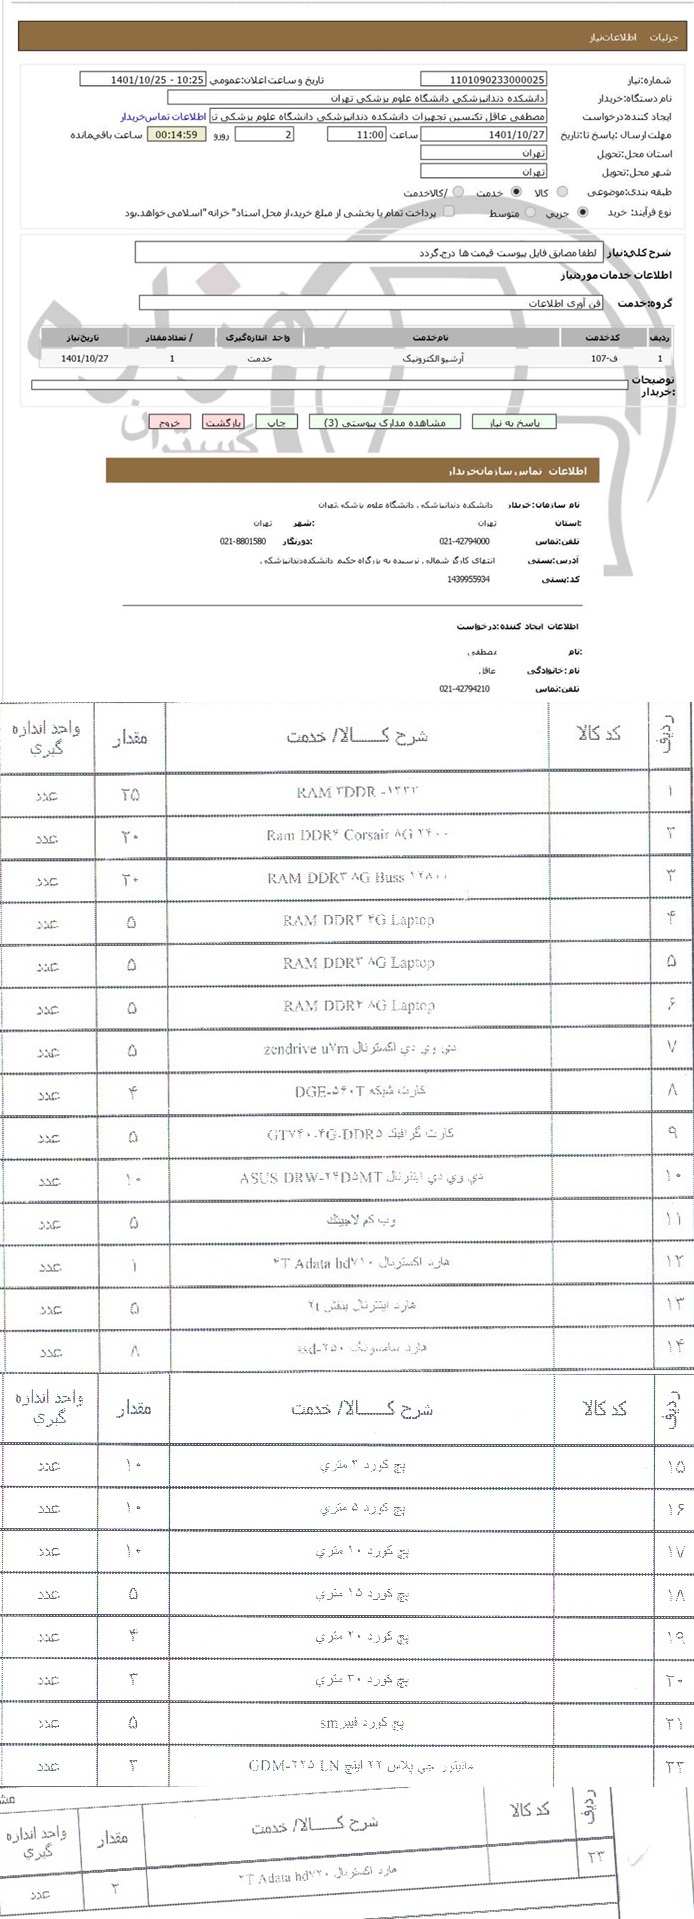 جزئیات اطلاعات نیاز
شماره نیاز: 1101090233000025 تاریخ و ساعت اعلان عمومی: 10:25 - 1401/10/25
نام دستگاه خریدار: دانشکده دندانپزشکی دانشگاه علوم پزشکی تهران
ایجاد کننده درخواست: مصطفی عاقل تکنسین تجهیزات دانشکده دندانپزشکی دانشگاه علوم پزشکی اطلاعات تماس خریدار
مهلت ارسال پاسخ تا: تاریخ 1401/10/27 ساعت 11:00 2 روز و 00:14:59 ساعت باقی مانده
استان محل تحویل: تهران
شهر محل تحویل: تهران
طبقه بندی موضوعی: کالا خدمت کالا/خدمت
نوع فرآیند خرید: جزیی متوسط پرداخت تمام یا بخشی از مبلغ خرید،از محل اسناد "خزانه اسلامی" خواهد بود.
شرح کلی نیاز: لطفا مطابق فایل پیوست قیمت ها درج گردد
اطلاعات خدمات مورد نیاز
گروه خدمت: فن آوری اطلاعات
ردیف کد خدمت نام خدمت واحد اندازه گیری تعداد / مقدار تاریخ نیاز
1 ف-107 آرشیو الکترونیک خدمت 1 1401/10/27
توضیحات خریدار:
پاسخ به نیاز مشاهده مدارک پیوستی (3) چاپ بازگشت خروج
اطلاعات تماس سازمان خریدار
نام سازمان خریدار: دانشکده دندانپزشکی دانشگاه علوم پزشکی تهران
استان: تهران شهر: تهران
تلفن تماس: 021-42794000 دورنگار: 021-8801580
آدرس پستی: انتهای کارگر شمالی نرسیده به بزرگراه حکیم دانشکده دندانپزشکی
کد پستی: 1439955934
اطلاعات ایجاد کننده درخواست:
نام: مصطفی
نام خانوادگی: عاقل
تلفن تماس: 021-42794210
ردیف کد کالا شرح کـــالا/ خدمت مقدار واحد اندازه گیري
۱ RAM ۳DDR -۱۳۳۳ ۲۵ عدد
۲ Ram DDR۴ Corsair ۸G ۲۴۰۰ ۲۰ عدد
۳ RAM DDR۳ ۸G Buss ۱۲۸۰۰ ۲۰ عدد
۴ RAM DDR۳ ۴G Laptop ۵ عدد
۵ RAM DDR۳ ۸G Laptop ۵ عدد
۶ RAM DDR۴ ۸G Laptop ۵ عدد
۷ دي وي دي اکسترنال zendrive u۷m ۵ عدد
۸ کارت شبکه DGE-۵۶۰T ۴ عدد
۹ کارت گرافیک GT۷۴۰-۴G-DDR۵ ۵ عدد
۱۰ دي وي دي اینترنال ASUS DRW-۲۴D۵MT ۱۰ عدد
۱۱ وب کم لاجیتک ۵ عدد
۱۲ هارد اکسترنال ۴T Adata hd۷۱۰ ۱ عدد
۱۳ هارد اینترنال بنفش ۲t ۵ عدد
۱۴ هارد سامسونگ ssd-۲۵۰ ۸ عدد
ردیف کد کالا شرح کـــالا/ خدمت مقدار واحد اندازه گیري
۱۵ پچ کورد ۳ متري ۱۰ عدد
۱۶ پچ کورد ۵ متري ۱۰ عدد
۱۷ پچ کورد ۱۰ متري ۱۰ عدد
۱۸ پچ کورد ۱۵ متري ۵ عدد
۱۹ پچ کورد ۲۰ متري ۴ عدد
۲۰ پچ کورد ۳۰ متري ۳ عدد
۲۱ پچ کورد فیبر sm ۵ عدد
۲۲ مانیتور جي پلاس ۲۲ اینچ GDM-۲۲۵ LN ۳ عدد
ردیف کد کالا شرح کـــالا/ خدمت مقدار واحد اندازه گیري
۲۳ هارد اکسترنال ۲T Adata hd۷۲۰ ۲ عدد